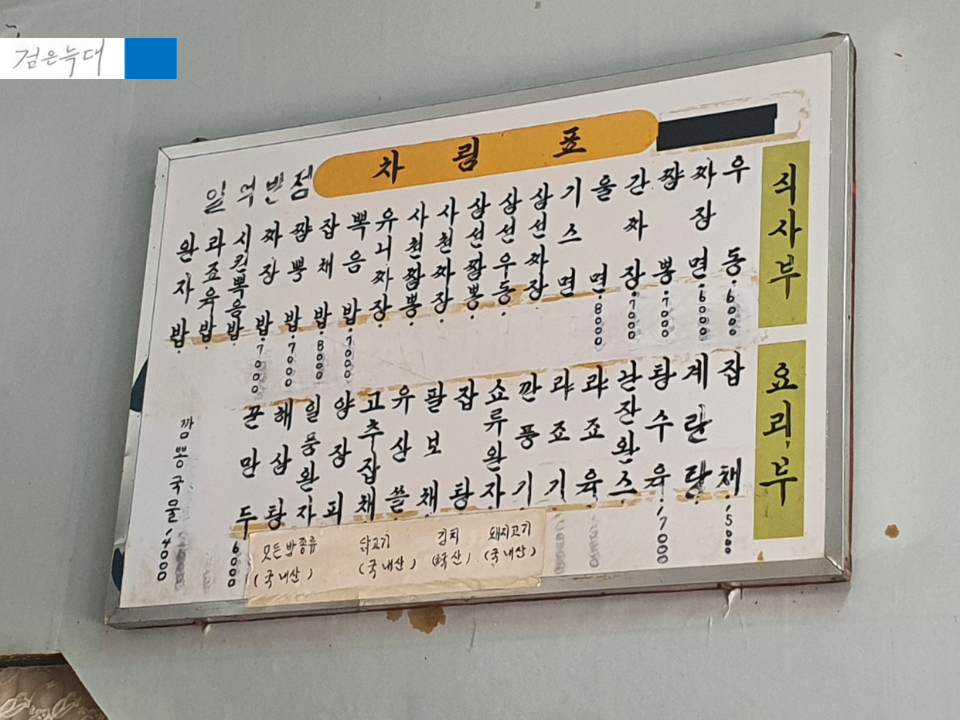 검은늑대
차림표
일억반점
식사부
우동 6000
짜장면 6000
짬뽕 7000
간짜장 7000
울면 8000
기스면
삼선짜장
삼선우동
삼선짬뽕
사천짜장
사천짬뽕
유니짜장
뽁음밥 7000
잡채밥 8000
짬뽕밥 7000
짜장밥 7000
뽁음밥
육밥
완자밥
요리부
잡채 15000
계란탕
탕수육 17000
난잔완스
라죠육
라죠기
깐풍기
쇼류완자
잡탕
팔보채
유산쓸
고추잡채
양장피
일품완자
해삼탕
군만두 6000
짬뽕국물 4000
모든밥종류 닭고기 김치 돼지고기
(국내산) (국내산) (국산) (국내산)